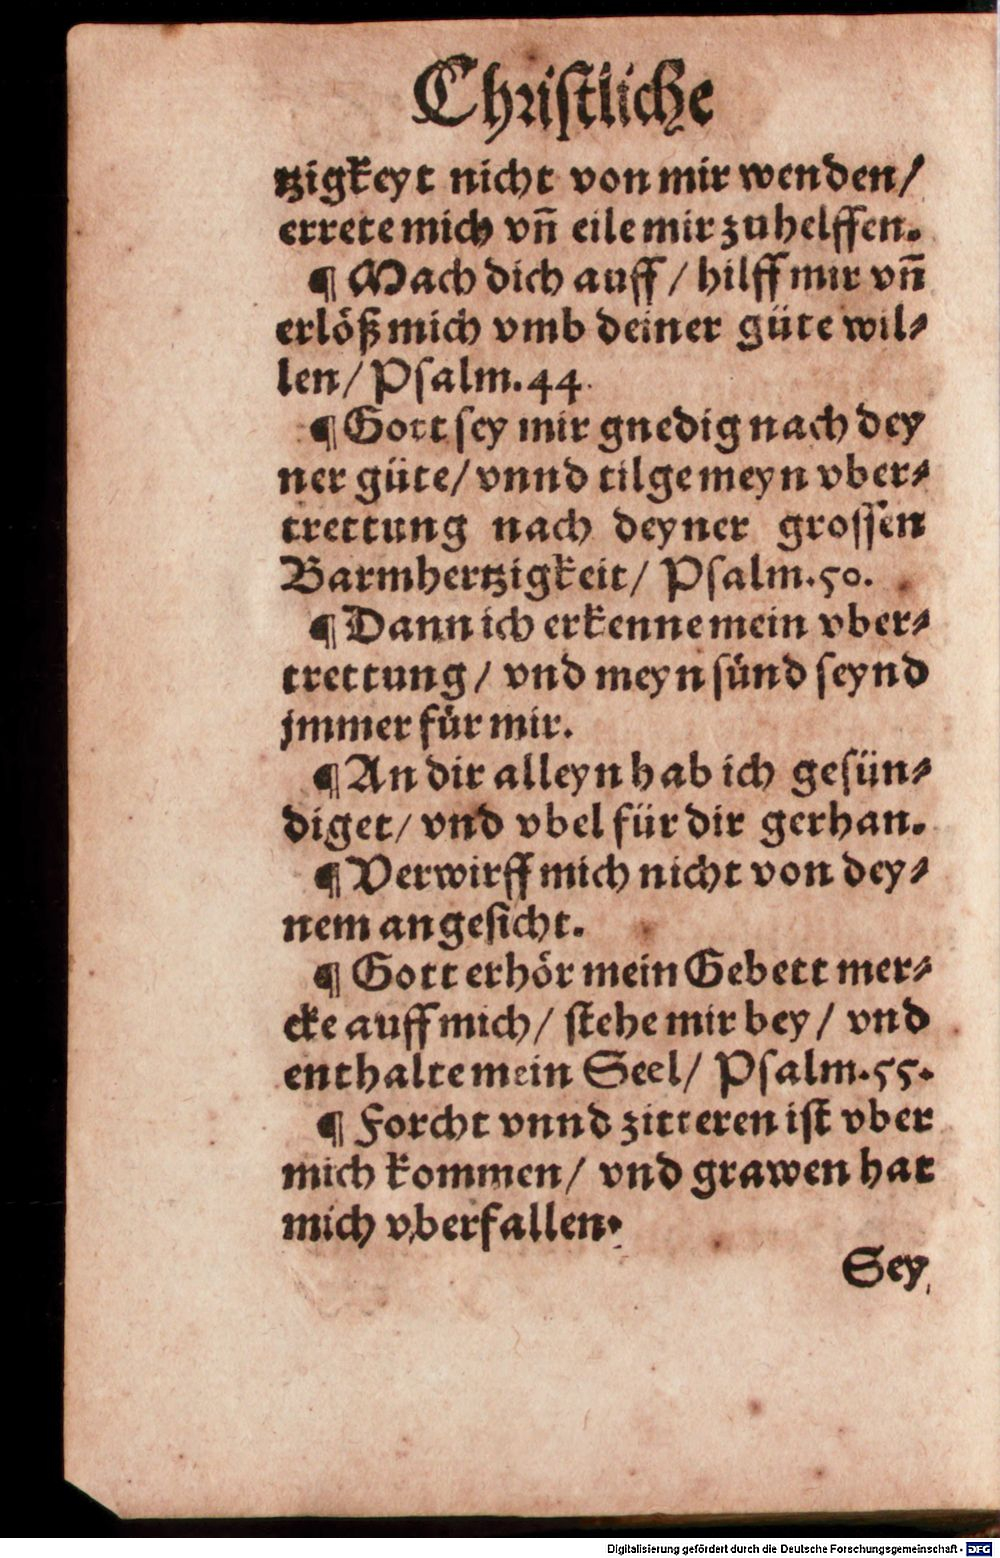 Christliche
tzigkeyt nicht von mir wenden/
errete mich vñ eile mir zu helffen.
¶ Mach dich auff / hilff mir vñ
erlöß mich vmb deiner güte wil⸗
len/ Psalm.44.
¶ Gott sey mir gnedig nach dey
ner güte/ vnnd tilge meyn vber⸗
trettung nach deyner grossen
Barmhertzigkeit/ Psalm.50.
¶ Dann ich erkenne mein vber⸗
trettung / vnd meyn sünd seynd
jmmer für mir.
¶ An dir alleyn hab ich gesün⸗
diget/ vnd vbel für dir gerhan.
¶ Verwirff mich nicht von dey⸗
nem angesicht.
¶ Gott erhör mein Gebett mer⸗
cke auff mich/ stehe mir bey / vnd
enthalte mein Seel/ Psalm.55.
¶ Forcht vnnd zitteren ist vber
mich kommen/ vnd grawen hat
mich vberfallen.
Sey
Digitalisierung gefördert durch die Deutsche Forschungsgemeinschaft - DFG